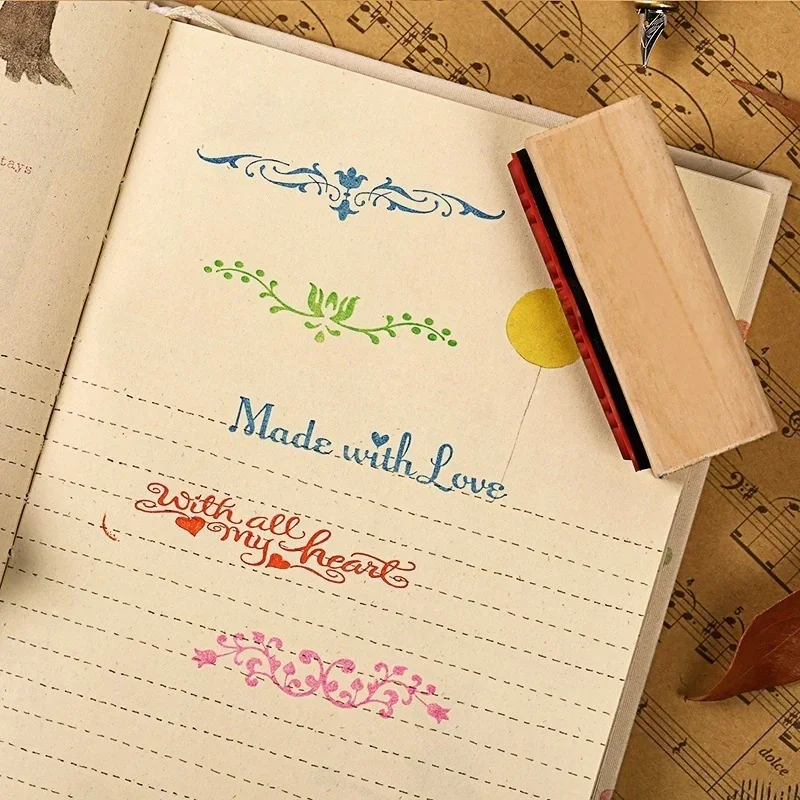 tays
Made with Love
With all
my heart
4
4
5
dolce